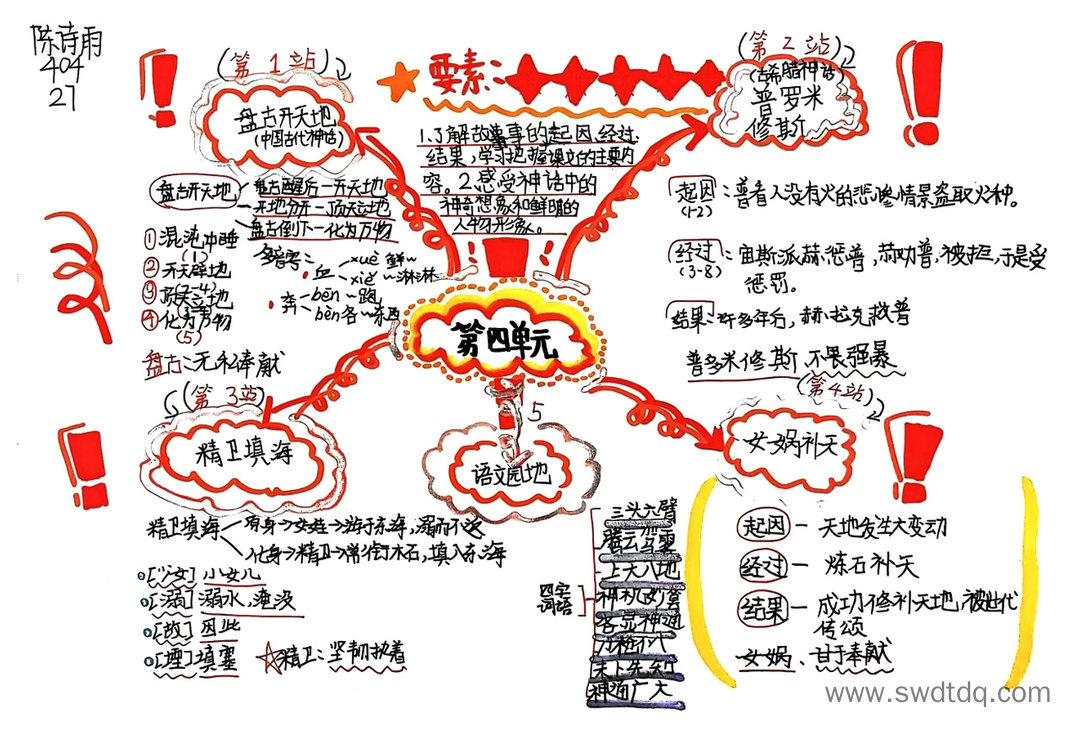 陈诗雨
404
27
要素:
1.了解故事的起因、经过、
结果,学习把握课文的主要内
容。2.感受神话中的
神奇想象和鲜明的
人物形象。
(第1站)
盘古开天地
(中国古代神话)
盘古开天地
盘古醒后一开天地
天地分开一顶天立地
盘古倒下一化为万物
①混沌中睡
(1)
②开天辟地
(2-4)
③顶天立地
④化为万物
(5)
多音字:
血 xuè 鲜~
xiě ~淋淋
奔 bēn ~跑
bèn 各~东西
盘古:无私奉献
(第2站)
(古希腊神话)
普罗米
修斯
起因:普看人没有火的悲惨情景盗取火种。
(1-2)
经过:宙斯派赫惩普,劝普,被拒,于是受
(3-8)
惩罚。
结果:许多年后,赫拉克救普
普多米修斯 不畏强暴
第四单元
5
语文园地
(第3站)
精卫填海
精卫填海
原身→女娃→游于东海,溺而不返
化身→精卫→常衔木石,填入东海
[少女] 小女儿
[溺] 溺水,淹没
[故] 因此
[堙] 填塞
精卫:坚韧执着
四字
词语
三头六臂
腾云驾雾
上天入地
神机妙算
各显神通
未卜先知
神通广大
(第4站)
女娲补天
起因 — 天地发生大变动
经过 — 炼石补天
结果 — 成功修补天地,被世代
传颂
女娲、甘于奉献
www.swdtdq.com